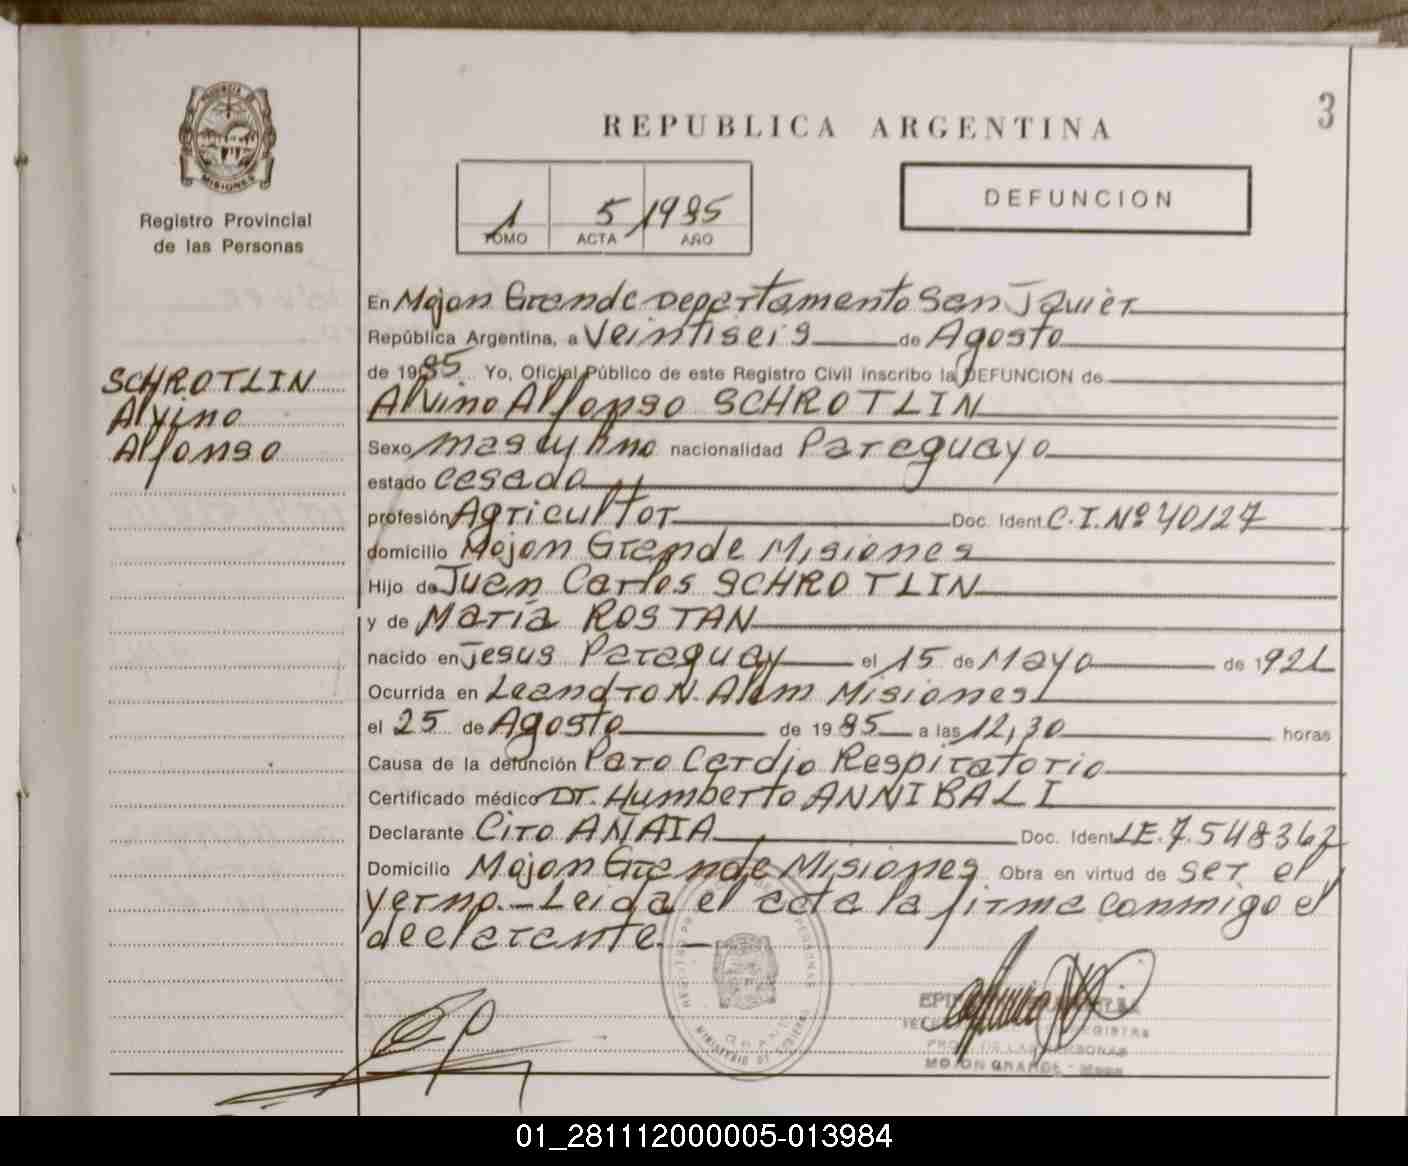 PROVINCIA DE
MISIONES
Registro Provincial
de las Personas
3
REPUBLICA ARGENTINA
1 5 1985
TOMO ACTA AÑO
DEFUNCION
En Mojon Grande Departamento San Javier
República Argentina, a Veintiseis de Agosto
de 1985. Yo, Oficial Público de este Registro Civil inscribo la DEFUNCION de
SCHROTLIN
Alvino
Alfonso
Alvino Alfonso SCHROTLIN
Sexo masculino nacionalidad Paraguayo
estado casado
profesión Agricultor Doc. Ident. C.I.Nº 40127
domicilio Mojon Grande Misiones
Hijo de Juan Carlos SCHROTLIN
y de María ROSTAN
nacido en Jesus Paraguay el 15 de Mayo de 1921
Ocurrida en Leandro N. Alem Misiones
el 25 de Agosto de 1985 a las 12,30 horas
Causa de la defunción Paro Cardio Respiratorio
Certificado médico Dr. Humberto ANNIBALI
Declarante Cito AÑAIA Doc. Ident. LE.7.548362
Domicilio Mojon Grande Misiones Obra en virtud de ser el
yerno.- Leida el acta la firma conmigo el
declarante.-
MINISTERIO DE GOBIERNO
MOJON GRANDE - Mnes
01_281112000005-013984